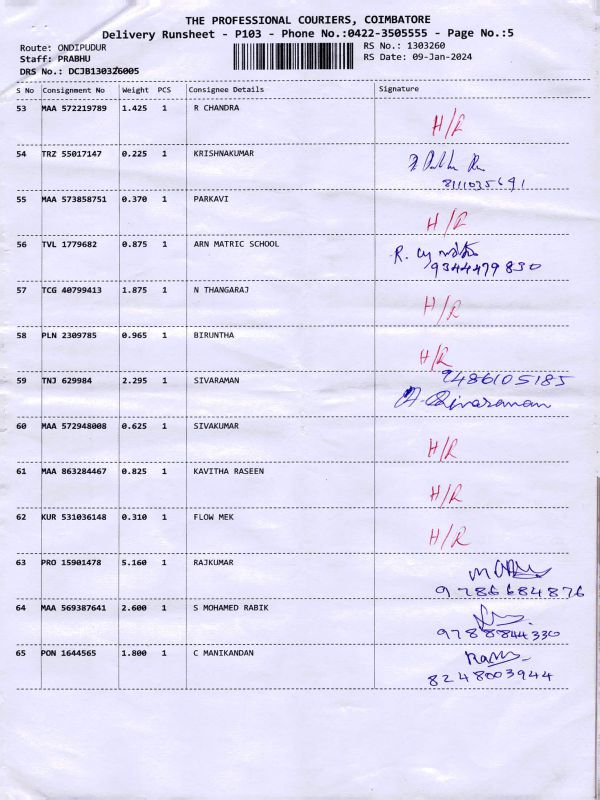 THE PROFESSIONAL COURIERS, COIMBATORE
Delivery Runsheet - P103 - Phone No.:0422-3505555 - Page No.:5
Route: ONDIPUDUR RS No.: 1303260
Staff: PRABHU RS Date: 09-Jan-2024
DRS No.: DCJB130326005
S No Consignment No Weight PCS Consignee Details Signature
53 MAA 572219789 1.425 1 R CHANDRA H/R
54 TRZ 55017147 0.225 1 KRISHNAKUMAR
8111035691
55 MAA 573858751 0.370 1 PARKAVI H/R
56 TVL 1779682 0.875 1 ARN MATRIC SCHOOL R.
9344479830
57 TCG 40799413 1.875 1 N THANGARAJ H/R
58 PLN 2309785 0.965 1 BIRUNTHA H/R
9486105185
59 TNJ 629984 2.295 1 SIVARAMAN A. Sivaraman
60 MAA 572948008 0.625 1 SIVAKUMAR H/R
61 MAA 863284467 0.825 1 KAVITHA RASEEN H/R
62 KUR 531036148 0.310 1 FLOW MEK H/R
63 PRO 15901478 5.160 1 RAJKUMAR
9786684876
64 MAA 569387641 2.600 1 S MOHAMED RABIK
9788844330
65 PON 1644565 1.800 1 C MANIKANDAN
8248003944